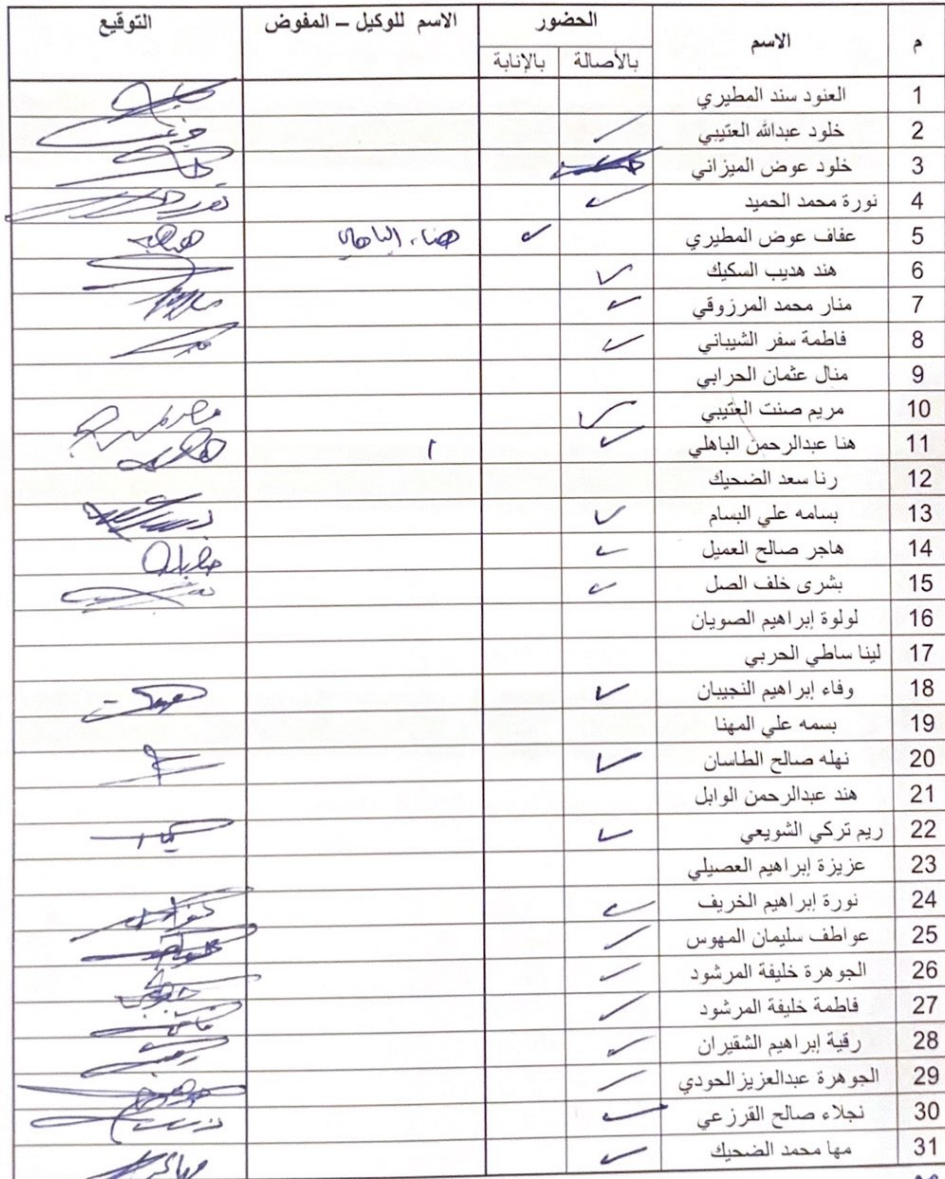 م الاسم الحضور الاسم للوكيل – المفوض التوقيع
بالأصالة بالإنابة
1 العنود سند المطيري
2 خلود عبدالله العتيبي
3 خلود عوض الميزاني
4 نورة محمد الحميد
5 عفاف عوض المطيري هناء الباهلي
6 هند هديب السكيك
7 منار محمد المرزوقي
8 فاطمة سفر الشيباني
9 منال عثمان الحرابي
10 مريم صنت العتيبي
11 هنا عبدالرحمن الباهلي
12 رنا سعد الضحيك
13 بسامه علي البسام
14 هاجر صالح العميل
15 بشرى خلف الصل
16 لولوة إبراهيم الصويان
17 لينا ساطي الحربي
18 وفاء إبراهيم النجيبان
19 بسمه علي المهنا
20 نهله صالح الطاسان
21 هند عبدالرحمن الوابل
22 ريم تركي الشويعي
23 عزيزة إبراهيم العصيلي
24 نورة إبراهيم الخريف
25 عواطف سليمان المهوس
26 الجوهرة خليفة المرشود
27 فاطمة خليفة المرشود
28 رقية إبراهيم الشقيران
29 الجوهرة عبدالعزيز الحودي
30 نجلاء صالح القرزعي
31 مها محمد الضحيك